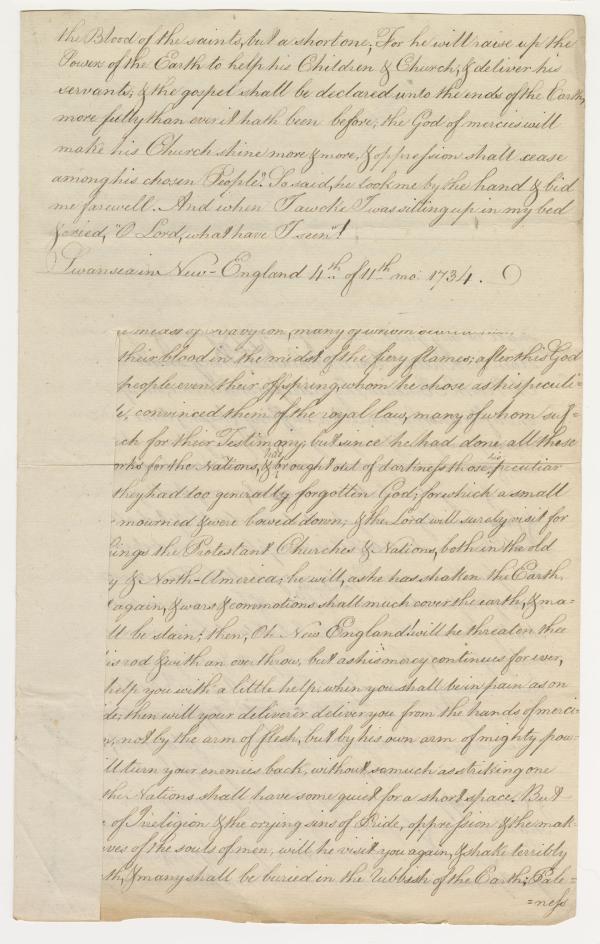 the Blood of the saints, but a short one; For he will raise up the
Powers of the Earth to help his Children & Church, & deliver his
servants; & the gospel shall be declared unto the ends of the Earth,
more fully than ever it hath been before; the God of mercies will
make his Church shine more & more, & oppression shall cease
among his chosen People". So said, he took me by the hand & bid
me farewell. And when I awoke I was sitting up in my bed
& cried, "O Lord, what have I seen"!
Swansea in New-England 4th of 11th mo. 1734.
many of whom
their blood in the midst of the fiery flames; after this God
people even their offspring, whom he chose as his peculi=
convinced them of the royal law, many of whom suf=
ch for their Testimony; but since he had done all these
orks for the Nations, & had brought out of darkness those his peculiar
they had too generally forgotten God; for which a small
mourned & were bowed down; & the Lord will surely visit for
ings the Protestant Churches & Nations, both in the old
y & North-America; he will, as he has shaken the Earth,
again, & wars & commotions shall much cover the earth, & ma=
ll be slain; then, Oh New England! will he threaten thee
is rod & with an overthrow, but as his mercy continues for ever,
help you with a little help, when you shall be in pain as on
de; then will your deliverer deliver you from the hands of merci=
n, not by the arm of flesh, but by his own arm of mighty pow=
ll turn your enemies back, without so much as striking one
the Nations shall have some quiet for a short space. But
of Ireligion & the crying sins of Pride, oppression & the mak=
ves of the souls of men, will he visit you again, & shake terribly
th, & many shall be buried in the rubbish of the Earth; Pale=
=ness